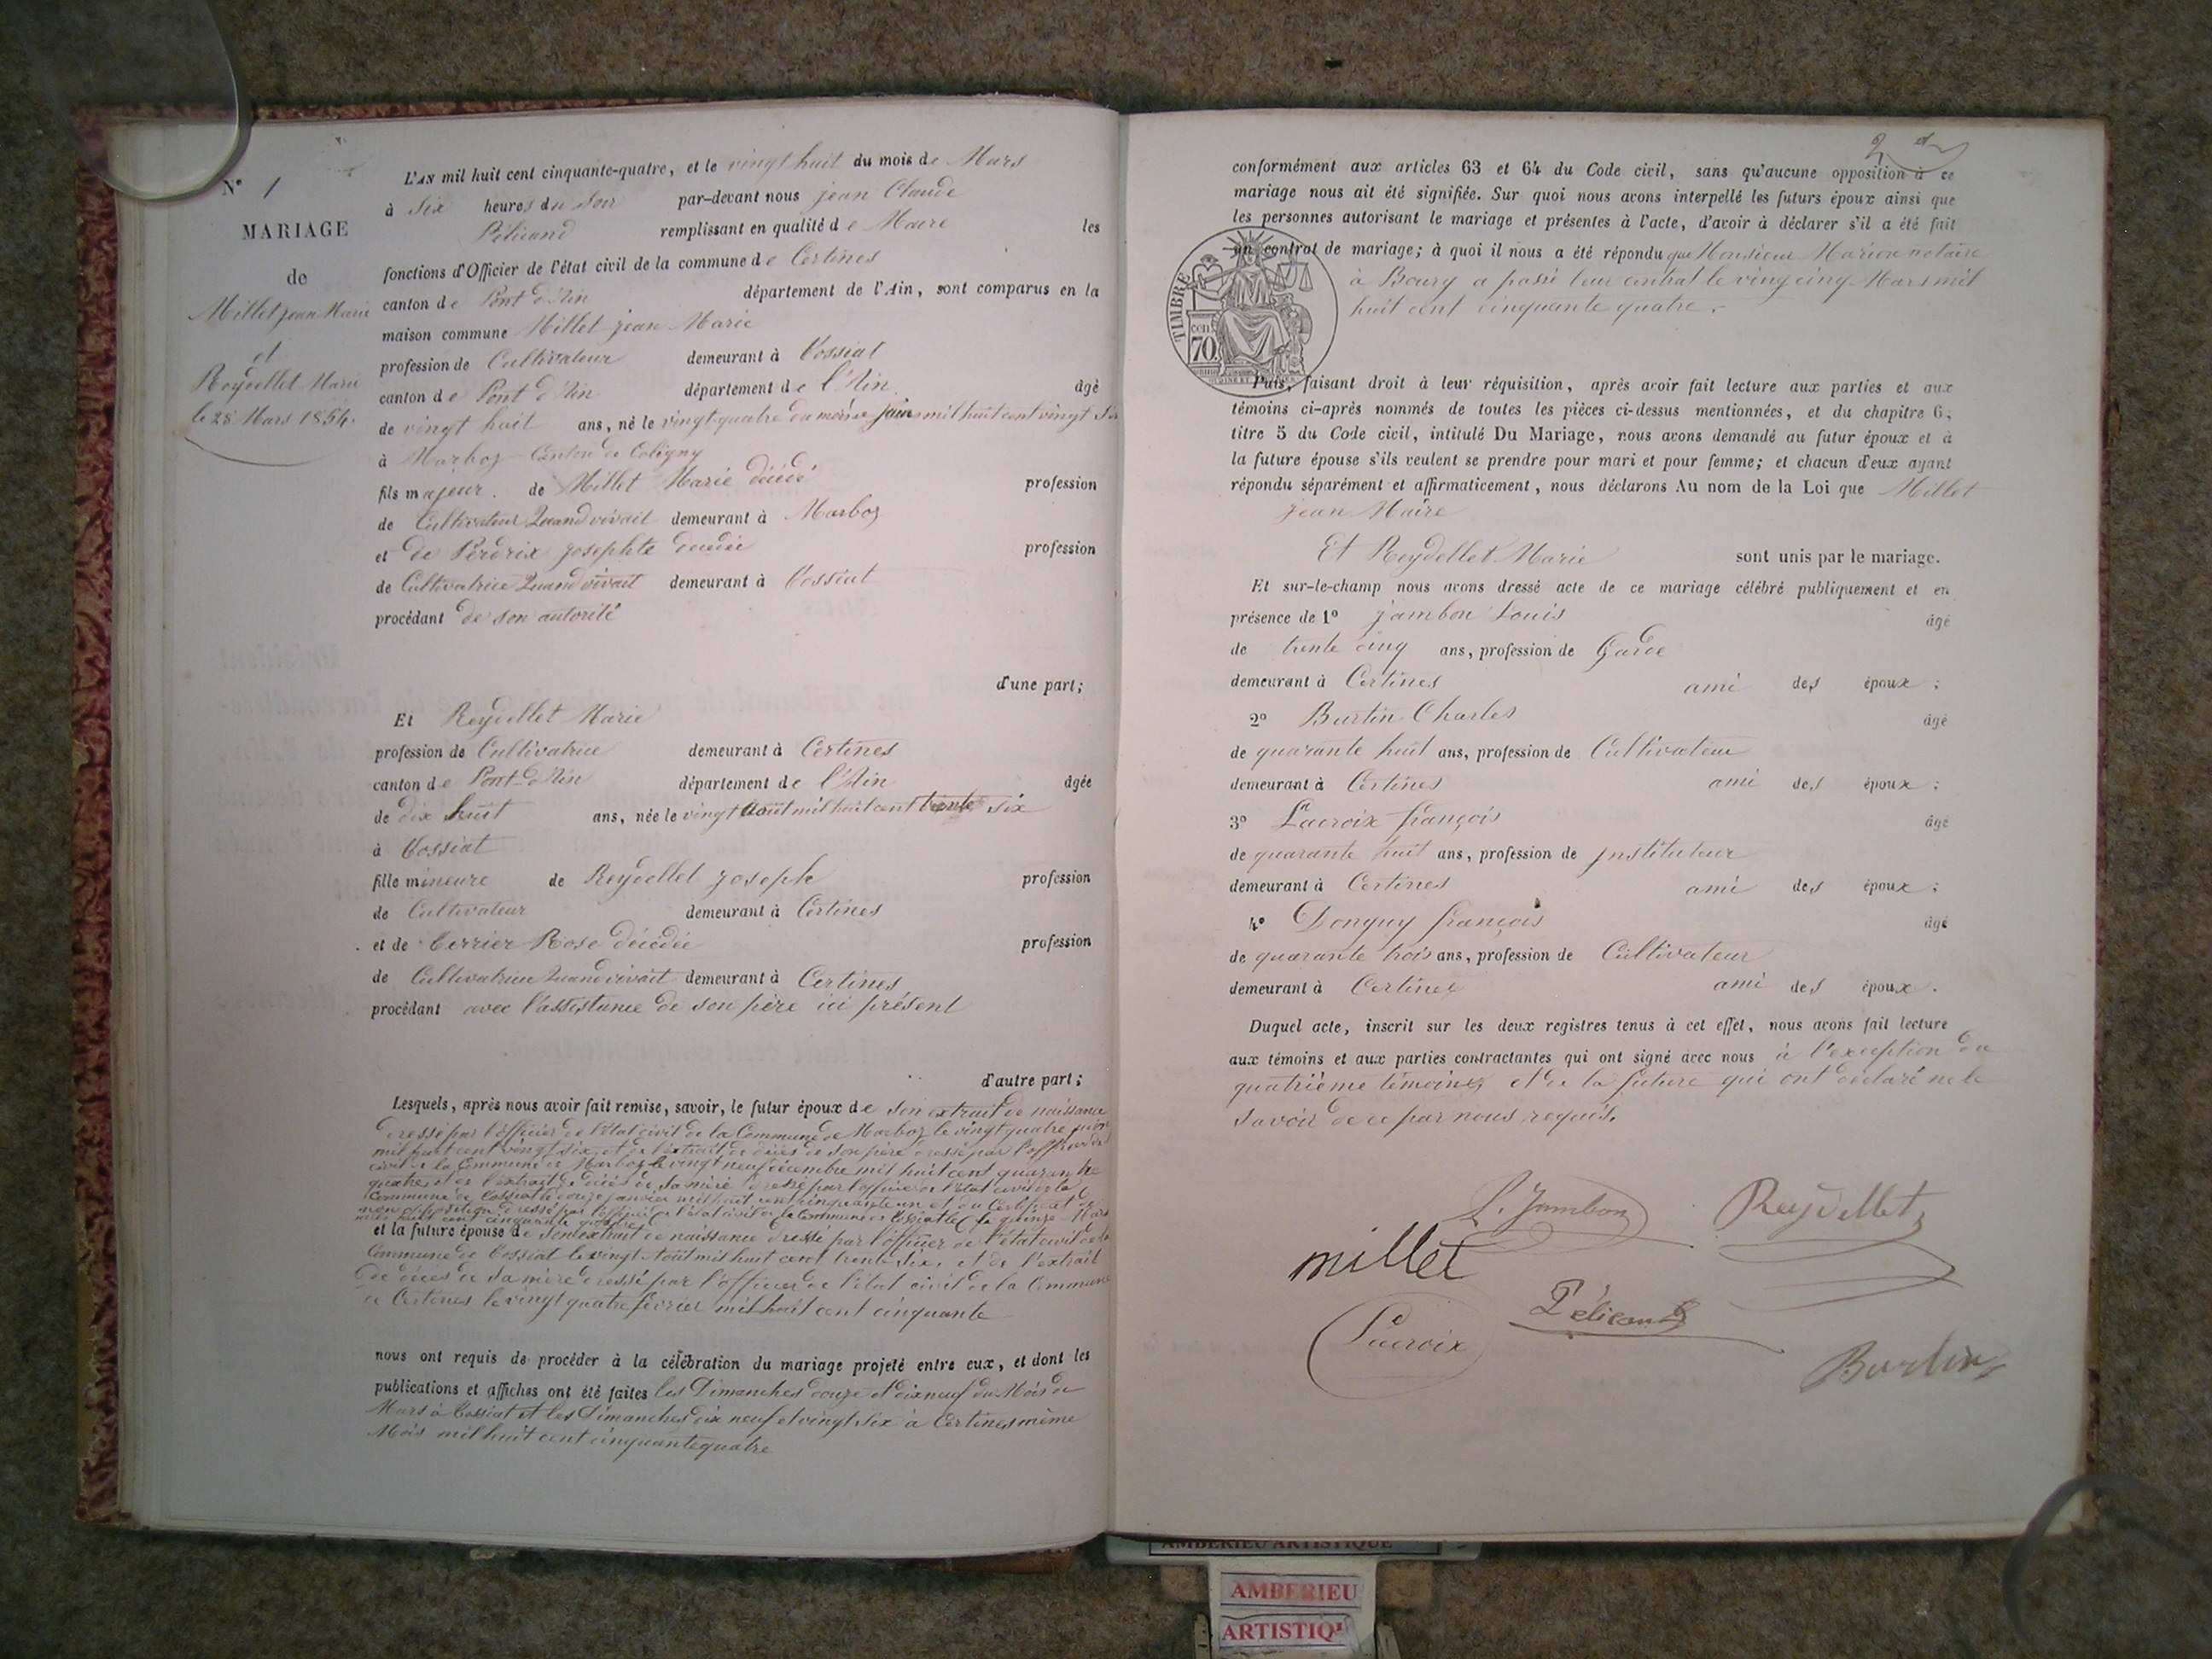 N° 1
MARIAGE
de
Millet jean Marie
et
Reydellet Marie
le 28 Mars 1854.
L'AN mil huit cent cinquante-quatre, et le vingt huit du mois de Mars
à Six heures du Soir par-devant nous jean Claude
Pélicand remplissant en qualité de Maire les
fonctions d'Officier de l'état civil de la commune de Certines
canton de Pont d'Ain département de l'Ain, sont comparus en la
maison commune Millet jean Marie
profession de Cultivateur demeurant à Tossiat
canton de Pont d'Ain département de l'Ain âgé
de vingt huit ans, né le vingt quatre du mois de juin mil huit cent vingt Six
à Marboz Canton de Coligny
fils majeur. de Millet Marie décédé profession
de Cultivateur Quand vivait demeurant à Marboz
et de Perdrix josephte décédée profession
de Cultivatrice Quand vivait demeurant à Tossiat
procédant de son autorité
d'une part;
Et Reydellet Marie
profession de Cultivatrice demeurant à Certines
canton de Pont d'Ain département de l'Ain âgée
de dix huit ans, née le vingt Août mil huit cent trente six
à Tossiat
fille mineure de Reydellet joseph profession
de Cultivateur demeurant à Certines
et de Terrier Rose décédée profession
de Cultivatrice Quand vivait demeurant à Certines
procédant avec l'assistance de son père ici présent
d'autre part;
Lesquels, après nous avoir fait remise, savoir, le futur époux de son extrait de naissance
dressé par l'officier de l'état civil de la Commune de Marboz le vingt quatre juin
mil huit cent vingt six, et de l'extrait de décès de son père dressé par l'officier de
civil de la Commune de Marboz le vingt neuf décembre mil huit cent quarante
quatre, et de l'extrait de décès de sa mère dressé par l'officier de l'état civil de la
Commune de Tossiat le douze janvier mil huit cent cinquante un et du Certificat de
non opposition dressé par l'officier de l'état civil de la Commune de Tossiat le quinze Mars
mil huit cent cinquante quatre
et la future épouse de son extrait de naissance dressé par l'officier de l'état civil de la
Commune de Tossiat le vingt Août mil huit cent trente six, et de l'extrait
de décès de sa mère dressé par l'officier de l'état civil de la Commune
de Certines le vingt quatre février mil huit cent cinquante
nous ont requis de procéder à la célébration du mariage projeté entre eux, et dont les
publications et affiches ont été faites les Dimanches douze et dix neuf du Mois de
Mars à Tossiat et les Dimanches dix neuf et vingt Six à Certines même
Mois mil huit cent cinquante quatre
2
conformément aux articles 63 et 64 du Code civil, sans qu'aucune opposition à ce
mariage nous ait été signifiée. Sur quoi nous avons interpellé les futurs époux ainsi que
les personnes autorisant le mariage et présentes à l'acte, d'avoir à déclarer s'il a été fait
un contrat de mariage; à quoi il nous a été répondu que Monsieur Marion notaire
à Bourg a passé leur contrat le vingt cinq Mars mil
huit cent cinquante quatre.
TIMBRE
70 cen.
Puis, faisant droit à leur réquisition, après avoir fait lecture aux parties et aux
témoins ci-après nommés de toutes les pièces ci-dessus mentionnées, et du chapitre 6,
titre 5 du Code civil, intitulé Du Mariage, nous avons demandé au futur époux et à
la future épouse s'ils veulent se prendre pour mari et pour femme; et chacun d'eux ayant
répondu séparément et affirmativement, nous déclarons Au nom de la Loi que Millet
jean Maire
Et Reydellet Marie sont unis par le mariage.
Et sur-le-champ nous avons dressé acte de ce mariage célébré publiquement et en
présence de 1° jambon Louis âgé
de trente cinq ans, profession de Garde
demeurant à Certines ami des époux;
2° Burtin Charles âgé
de quarante huit ans, profession de Cultivateur
demeurant à Certines ami des époux;
3° Lacroix françois âgé
de quarante huit ans, profession de jnstituteur
demeurant à Certines ami des époux;
4° Donguy françois âgé
de quarante trois ans, profession de Cultivateur
demeurant à Certines ami des époux.
Duquel acte, inscrit sur les deux registres tenus à cet effet, nous avons fait lecture
aux témoins et aux parties contractantes qui ont signé avec nous à l'exception du
quatrième témoins et de la future qui ont déclaré ne le
savoir de ce par nous requis.
L. Jambon Reydellet
millet
Pélicand
Lacroix
Burtin
AMBERIEU ARTISTIQUE
AMBERIEU
ARTISTIQ